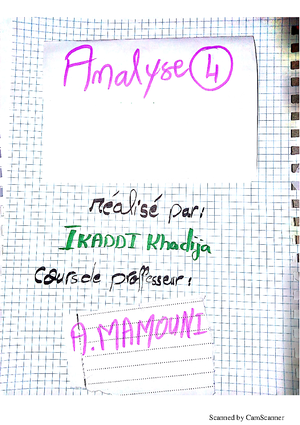 Analyse 4
réalisé par:
IKADDI Khadija
cours de professeur:
A. MAMOUNI
Scanned by CamScanner